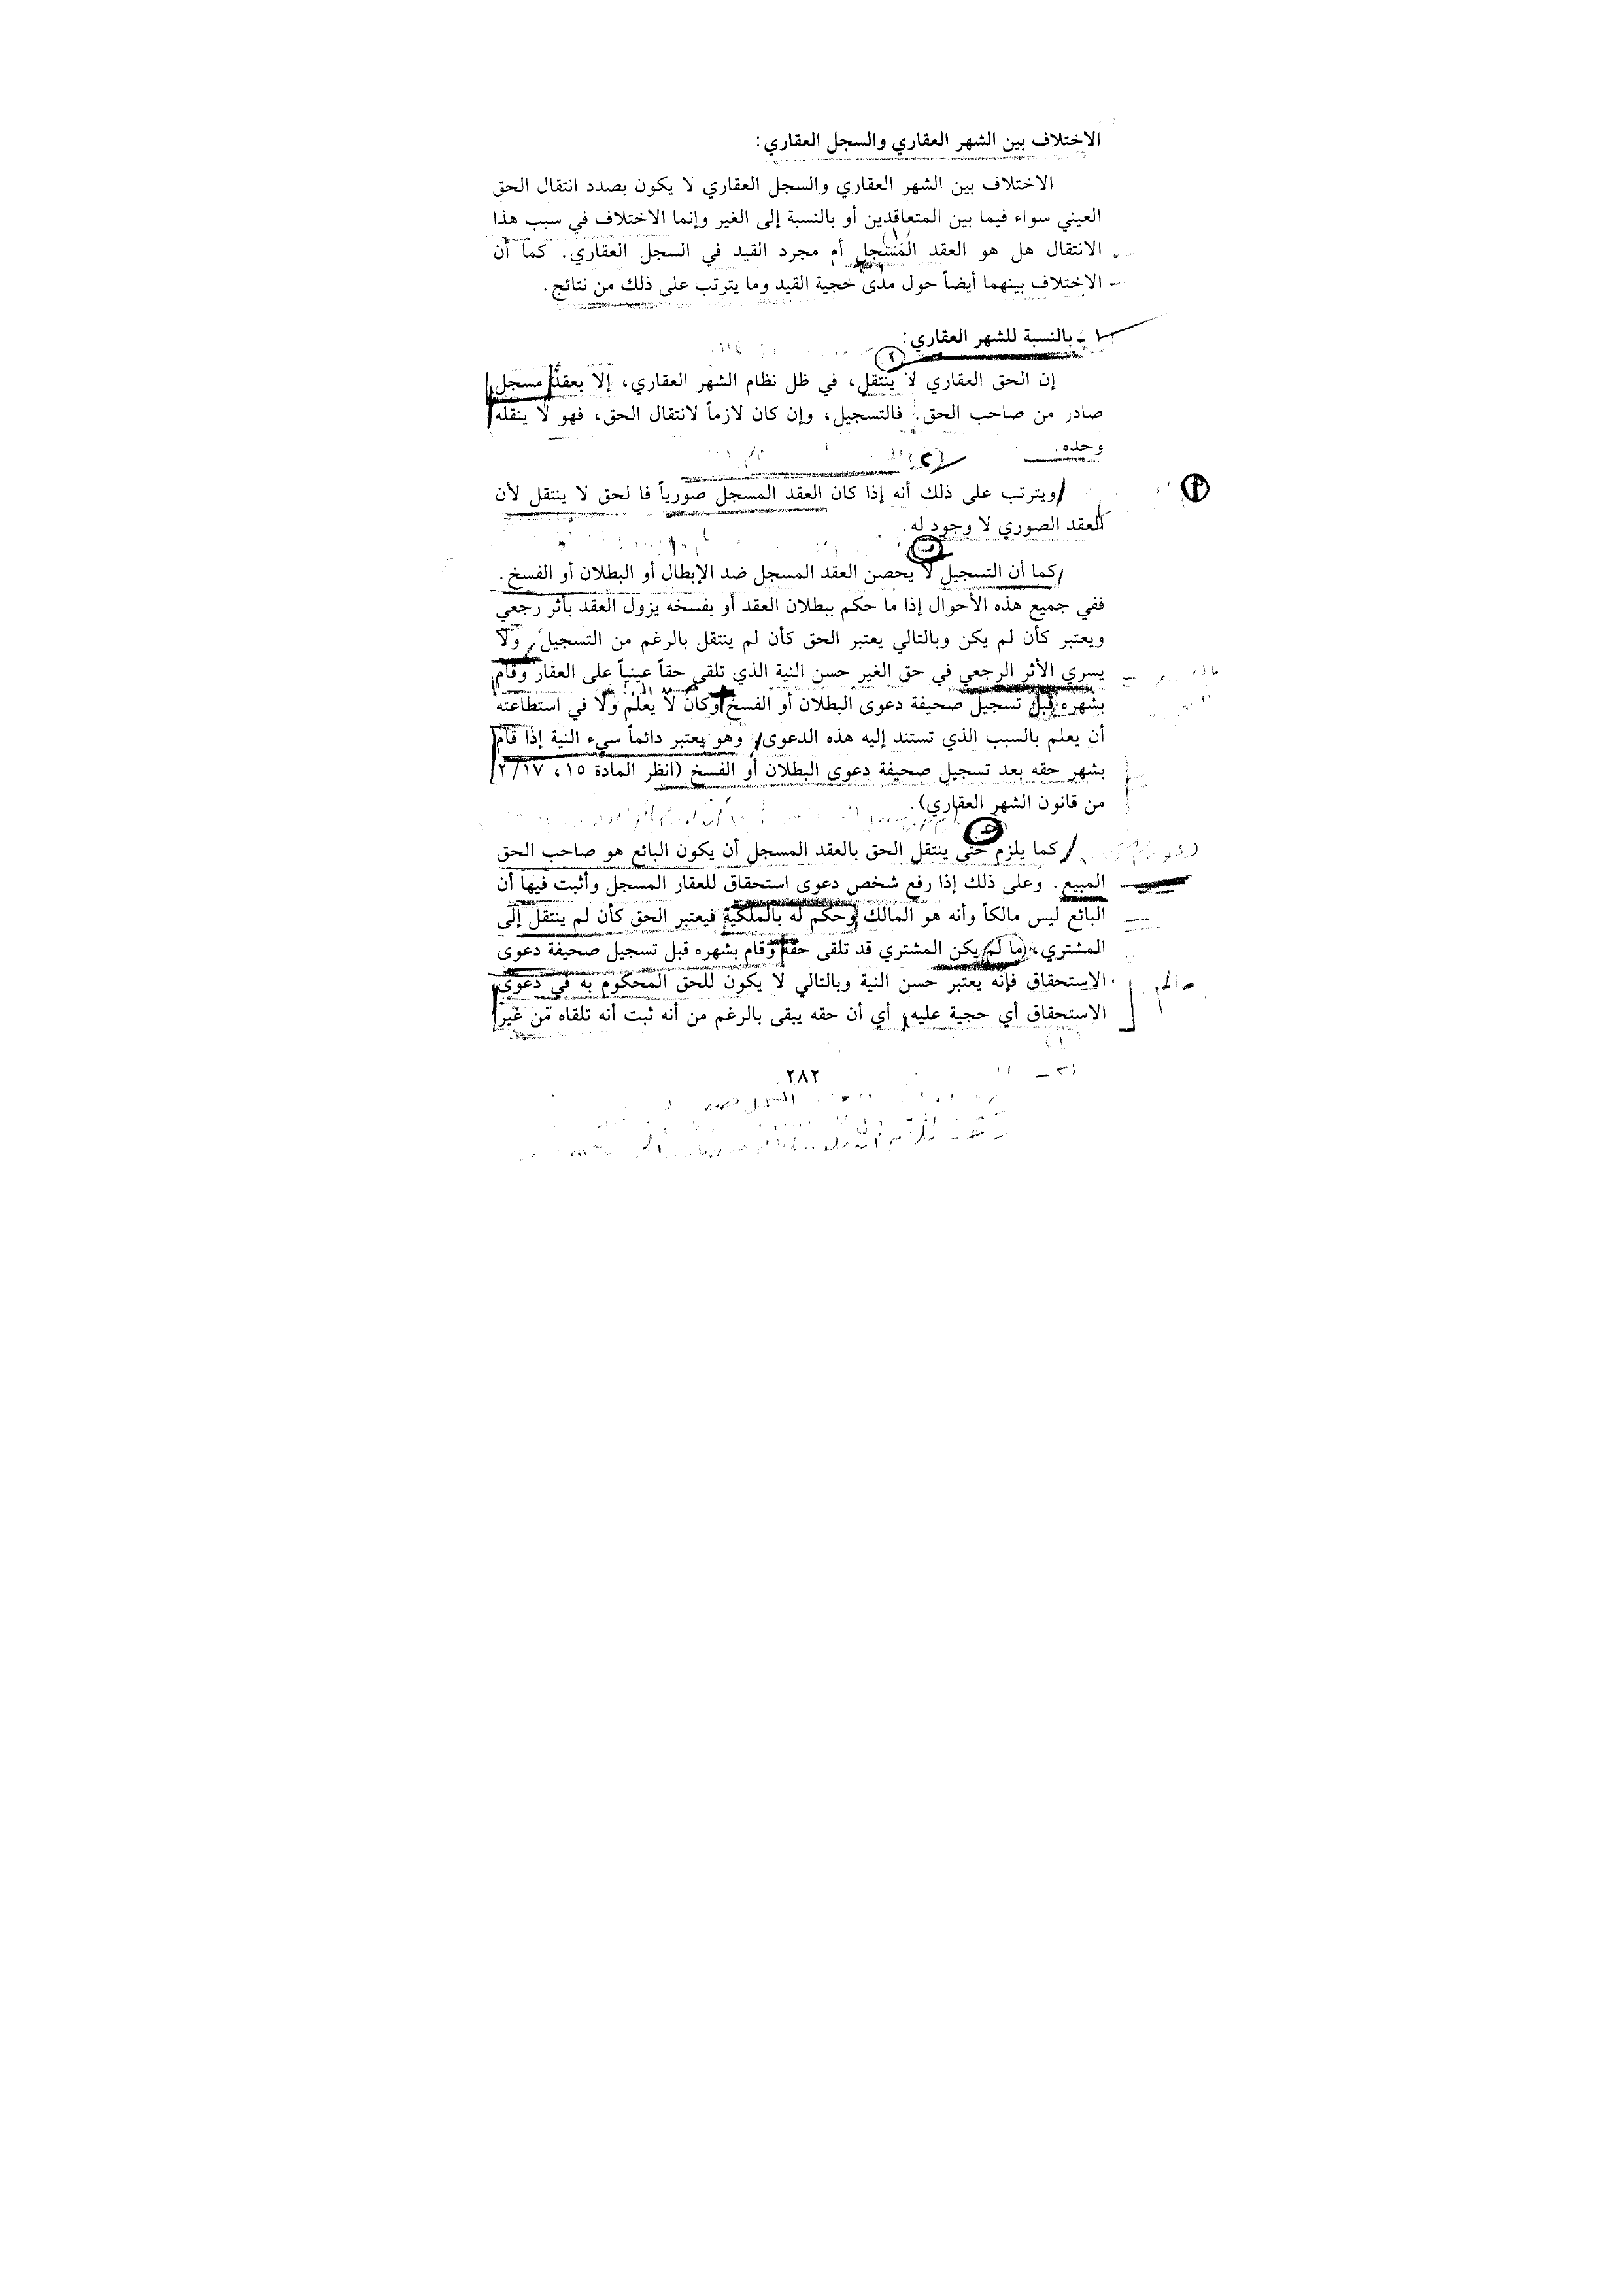 الاختلاف بين الشهر العقاري والسجل العقاري:
الاختلاف بين الشهر العقاري والسجل العقاري لا يكون بصدد انتقال الحق
العيني سواء فيما بين المتعاقدين أو بالنسبة إلى الغير وإنما الاختلاف في سبب هذا
الانتقال هل هو العقد المسجل أم مجرد القيد في السجل العقاري. كما أن
الاختلاف بينهما أيضاً حول مدى حجية القيد وما يترتب على ذلك من نتائج.
١ - بالنسبة للشهر العقاري:
إن الحق العقاري لا ينتقل، في ظل نظام الشهر العقاري، إلا بعقد مسجل
صادر من صاحب الحق. فالتسجيل، وإن كان لازماً لانتقال الحق، فهو لا ينقله
وحده.
ويترتب على ذلك أنه إذا كان العقد المسجل صورياً فا لحق لا ينتقل لأن
العقد الصوري لا وجود له.
كما أن التسجيل لا يحصن العقد المسجل ضد الإبطال أو البطلان أو الفسخ.
ففي جميع هذه الأحوال إذا ما حكم ببطلان العقد أو بفسخه يزول العقد بأثر رجعي
ويعتبر كأن لم يكن وبالتالي يعتبر الحق كأن لم ينتقل بالرغم من التسجيل. ولا
يسري الأثر الرجعي في حق الغير حسن النية الذي تلقى حقاً عينياً على العقار وقام
بشهره قبل تسجيل صحيفة دعوى البطلان أو الفسخ وكان لا يعلم ولا في استطاعته
أن يعلم بالسبب الذي تستند إليه هذه الدعوى، وهو يعتبر دائماً سيء النية إذا قام
بشهر حقه بعد تسجيل صحيفة دعوى البطلان أو الفسخ (انظر المادة ١٥، ٢/١٧
من قانون الشهر العقاري).
كما يلزم حتى ينتقل الحق بالعقد المسجل أن يكون البائع هو صاحب الحق
المبيع. وعلى ذلك إذا رفع شخص دعوى استحقاق للعقار المسجل وأثبت فيها أن
البائع ليس مالكاً وأنه هو المالك وحكم له بالملكية فيعتبر الحق كأن لم ينتقل إلى
المشتري، ما لم يكن المشتري قد تلقى حقه وقام بشهره قبل تسجيل صحيفة دعوى
الاستحقاق فإنه يعتبر حسن النية وبالتالي لا يكون للحق المحكوم به في دعوى
الاستحقاق أي حجية عليه، أي أن حقه يبقى بالرغم من أنه ثبت أنه تلقاه من غير
٢٨٢